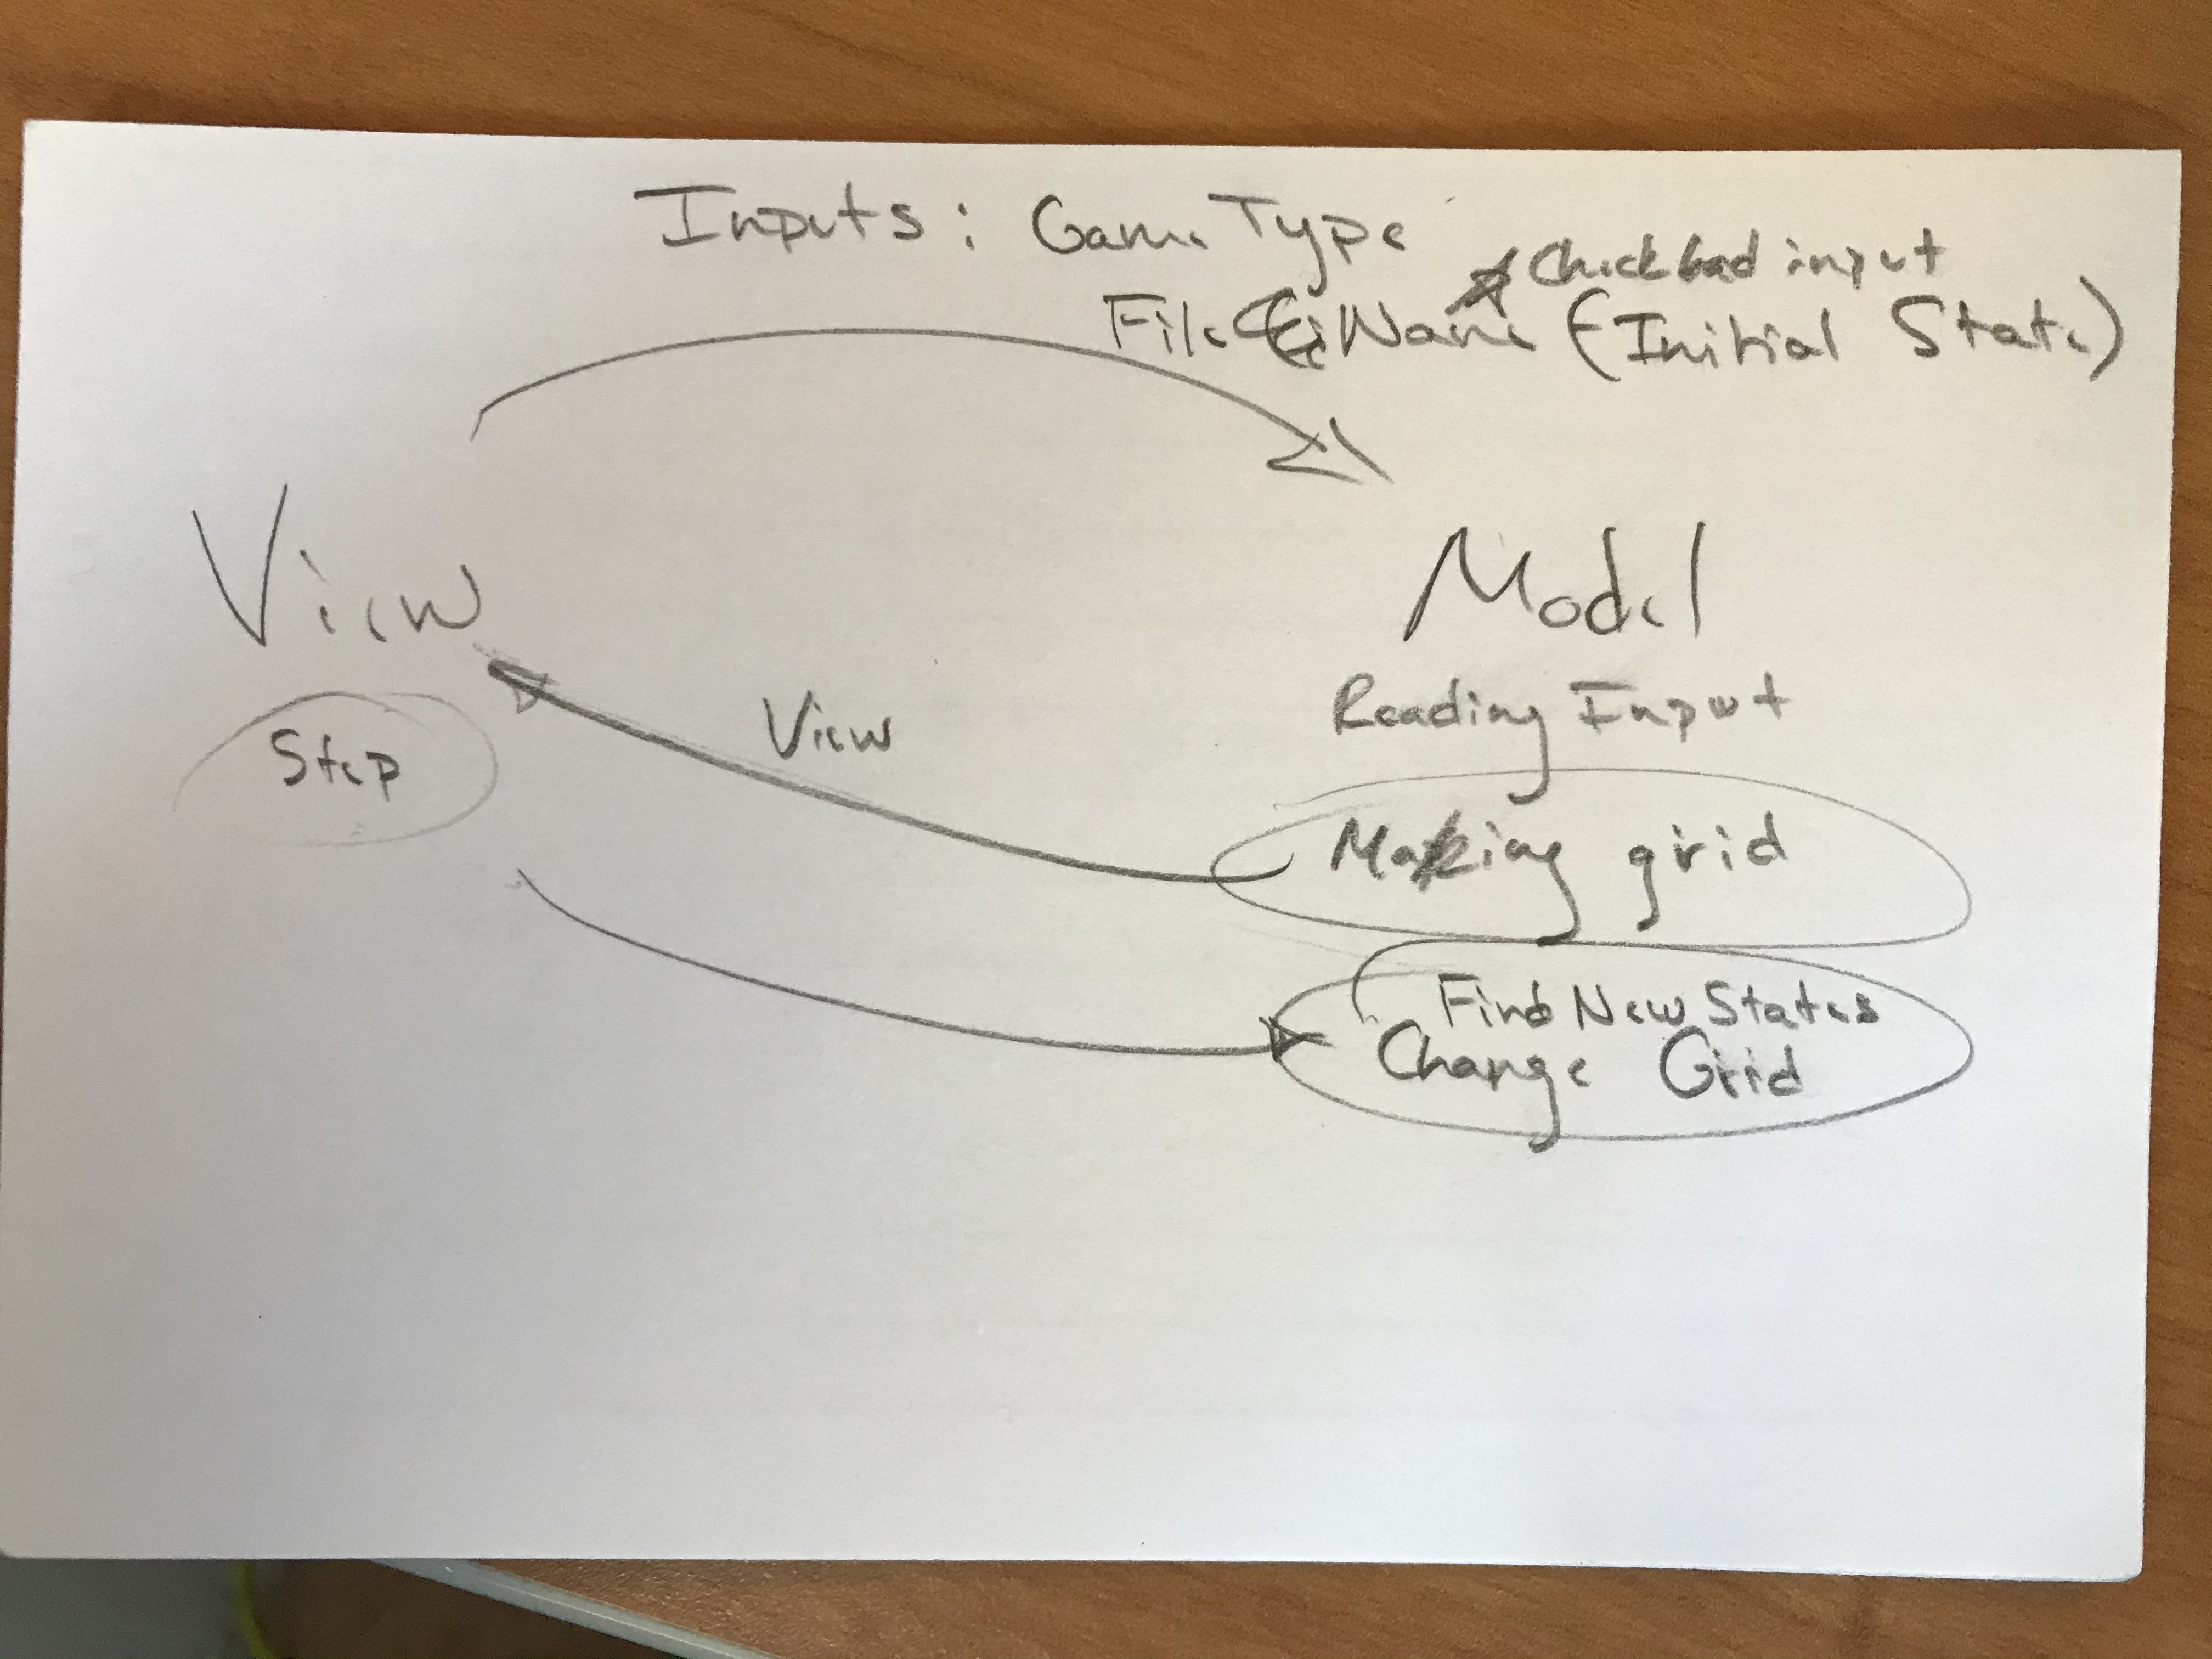 Inputs: Game Type
* Check bad input
File Name (Initial State)
View
Model
Step
Reading Input
View
Making grid
Find New States
Change Grid